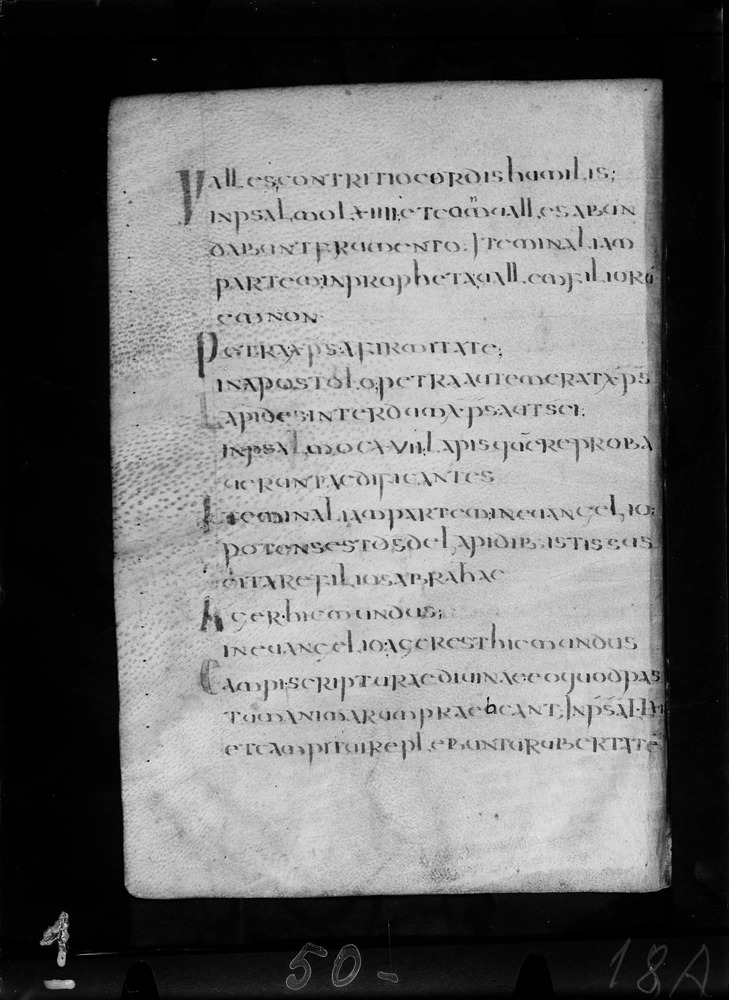 Valles contritio cordis humilis;
in psalmo LXIIII; et camualles abun
dabunt frumento. Item in aliam
partem in propheta uallem filioru
ennon
Petra xps a firmitate;
in apostolo; petra autem erat xps
Lapides interdum xps aut sci;
in psalmo CXVII; lapis que reproba
uerunt aedificantes
Item in aliam partem in euangelio;
potens est ds de lapidib istis sus
citare filios abrahae
Ager hic mundus;
in euangelio ager est hic mundus
Campi scripturae diuinae eo quod pas
tum animarum praebeant. In psal
et campi tui replebuntur ubertate
1
50-
18A